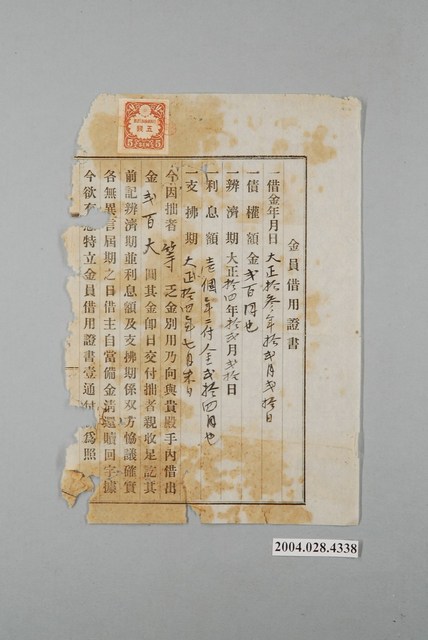 金員借用證書
一借金年月日 大正拾參年拾弍月弍拾日
一債權額金弍百円也
一辨濟期 大正拾四年拾弍月弍拾日
一利息額 壱個年ニ付金弍拾四円也
一支拂期 大正拾四年七月末日
今因拙者等乏金別用乃向與貴殿手內借出
金弍百大圓其金卽日交付拙者親收足訖其
前記辨濟期並利息額及支拂期係双方協議確實
各無異言屆期之日借主自當備金淸還贖回字據
今欲有 特立金員借用證書壹通付 爲照
五錢
2004.028.4338